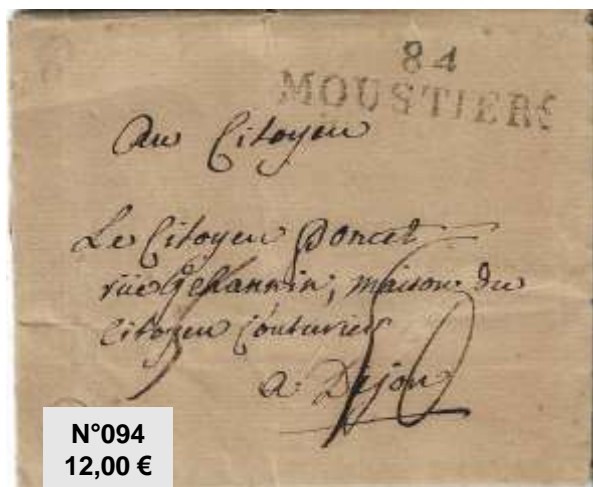 84
MOUSTIERS
Au Citoyen
Le Citoyen Poncet
rüe Jehannin, maison du
Citoyen Couturier
a Dijon
N°094
12,00 €